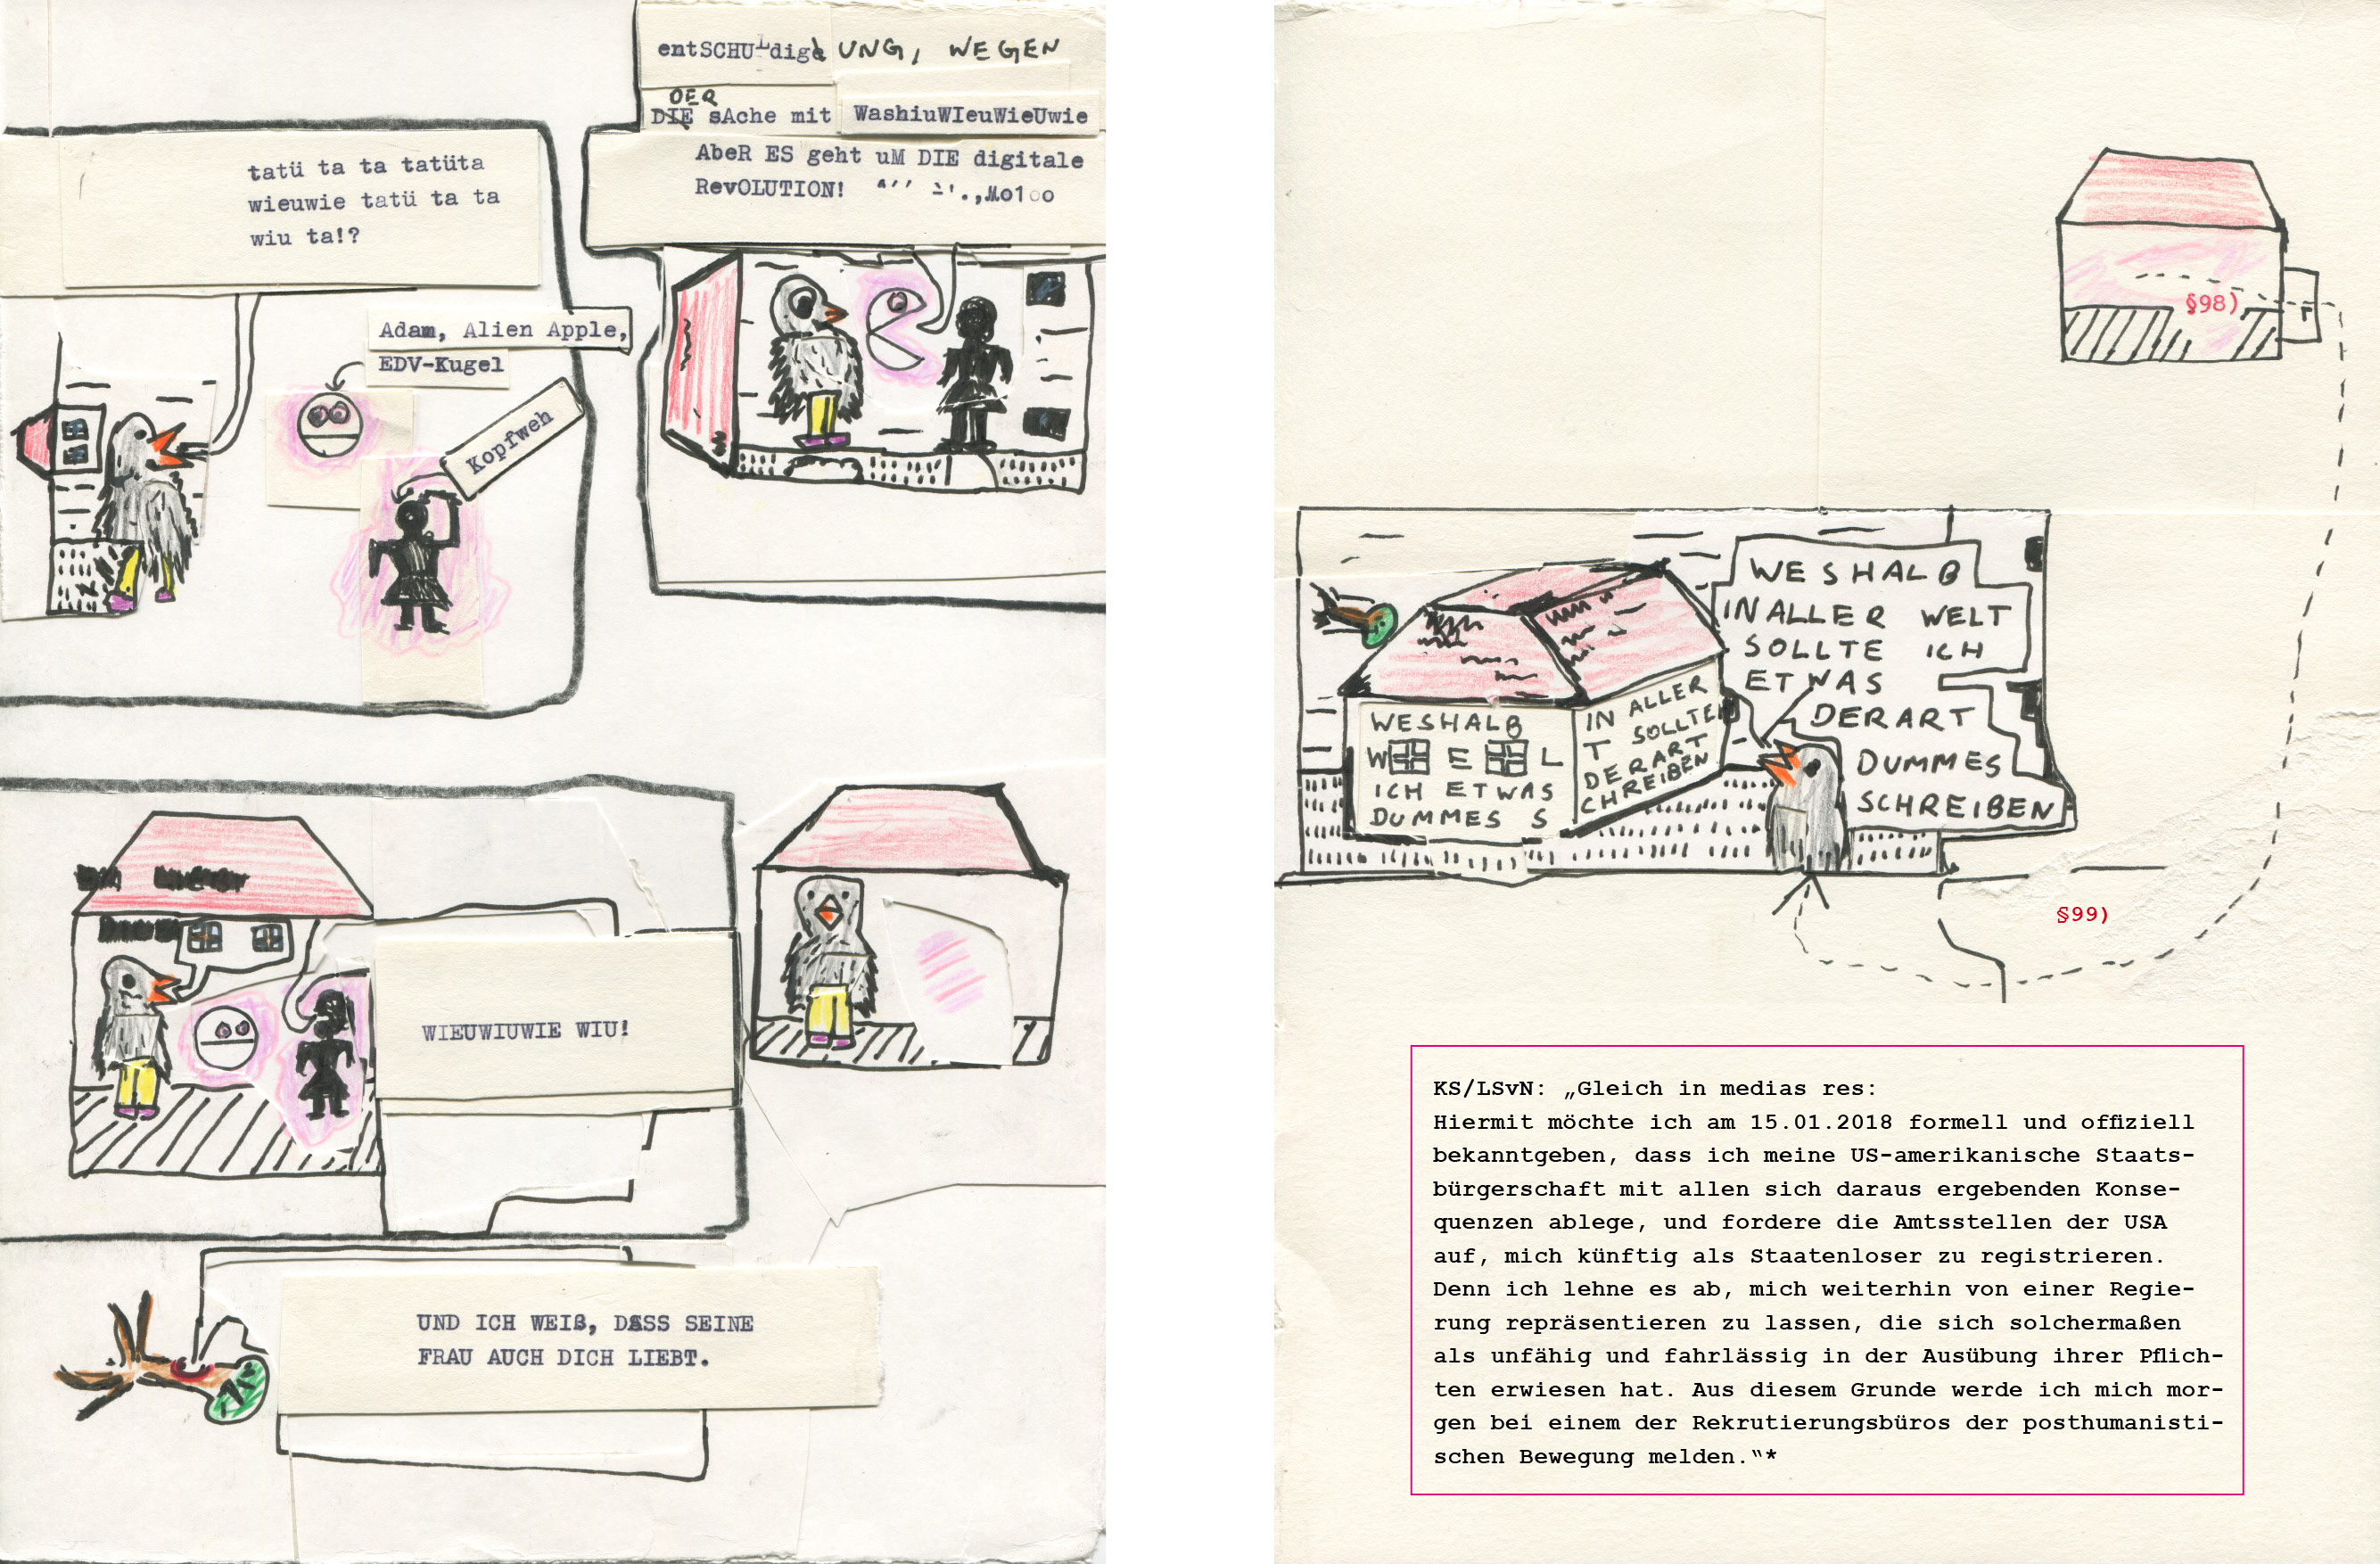 tatü ta ta tatüta
wieuwie tatü ta ta
wiu ta!?
Adam, Alien Apple,
EDV-Kugel
Kopfweh
entSCHULdigUNG, WEGEN
DER
DIE sAche mit WashiuWIeuWieUwie
AbeR ES geht uM DIE digitale
RevOLUTION!
WIEUWIUWIE WIU!
UND ICH WEIß, DASS SEINE
FRAU AUCH DICH LIEBT.
§98)
WESHALB
IN ALLER WELT
SOLLTE ICH
ETWAS
DERART
DUMMES
SCHREIBEN
WESHALB
W E L
ICH ETWAS
DUMMES S
IN ALLER
T SOLLTE
DERART
CHREIBEN
§99)
KS/LSvN: „Gleich in medias res:
Hiermit möchte ich am 15.01.2018 formell und offiziell
bekanntgeben, dass ich meine US-amerikanische Staats-
bürgerschaft mit allen sich daraus ergebenden Konse-
quenzen ablege, und fordere die Amtsstellen der USA
auf, mich künftig als Staatenloser zu registrieren.
Denn ich lehne es ab, mich weiterhin von einer Regie-
rung repräsentieren zu lassen, die sich solchermaßen
als unfähig und fahrlässig in der Ausübung ihrer Pflich-
ten erwiesen hat. Aus diesem Grunde werde ich mich mor-
gen bei einem der Rekrutierungsbüros der posthumanisti-
schen Bewegung melden.“*